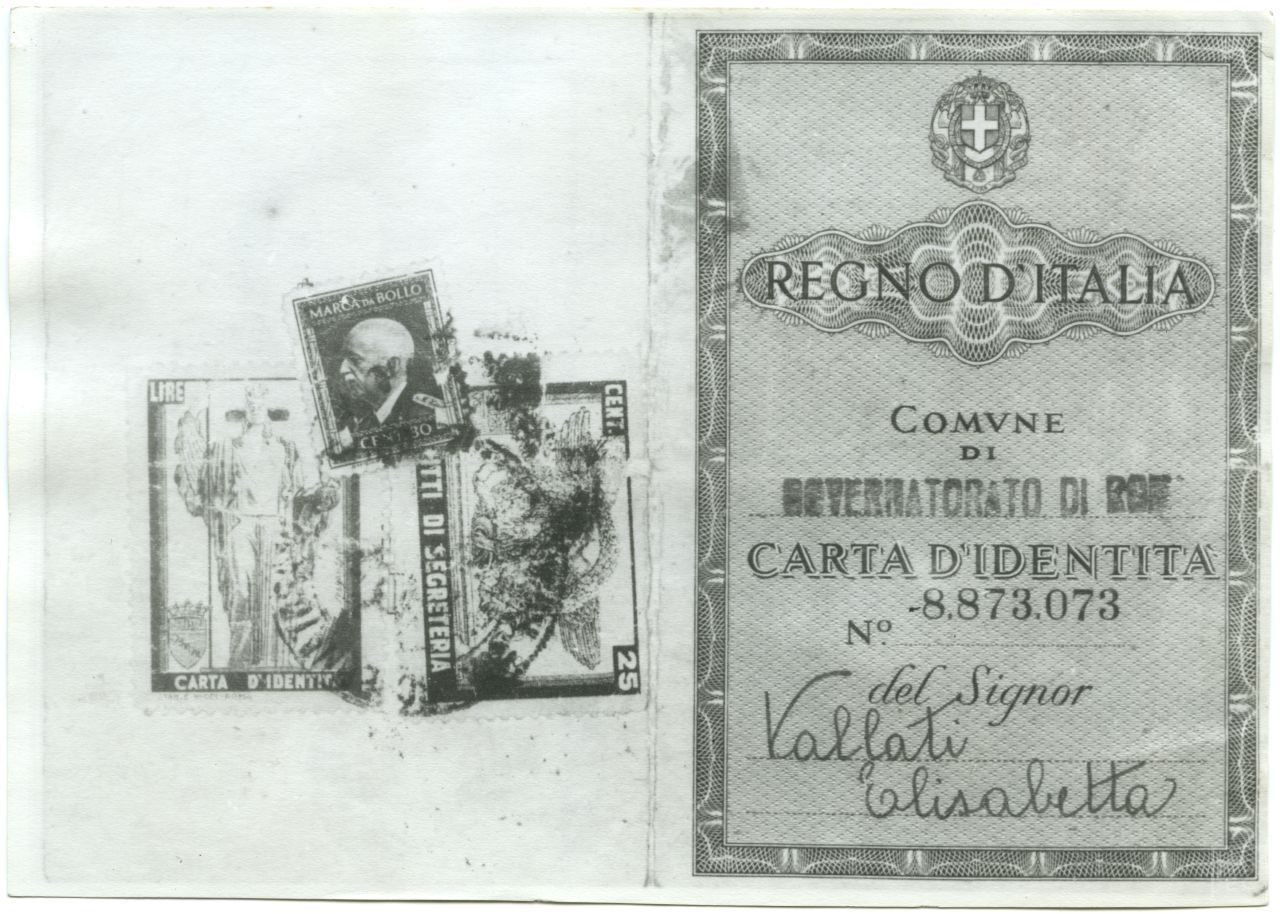 MARCA DA BOLLO
CENT. 30
LIRE
CARTA D'IDENTIT
CENT.
TTI DI SEGRETERIA
25
REGNO D'ITALIA
COMVNE
DI
GOVERNATORATO DI ROM
CARTA D'IDENTITA
Nº -8.873.073
del Signor
Vallati
Elisabetta